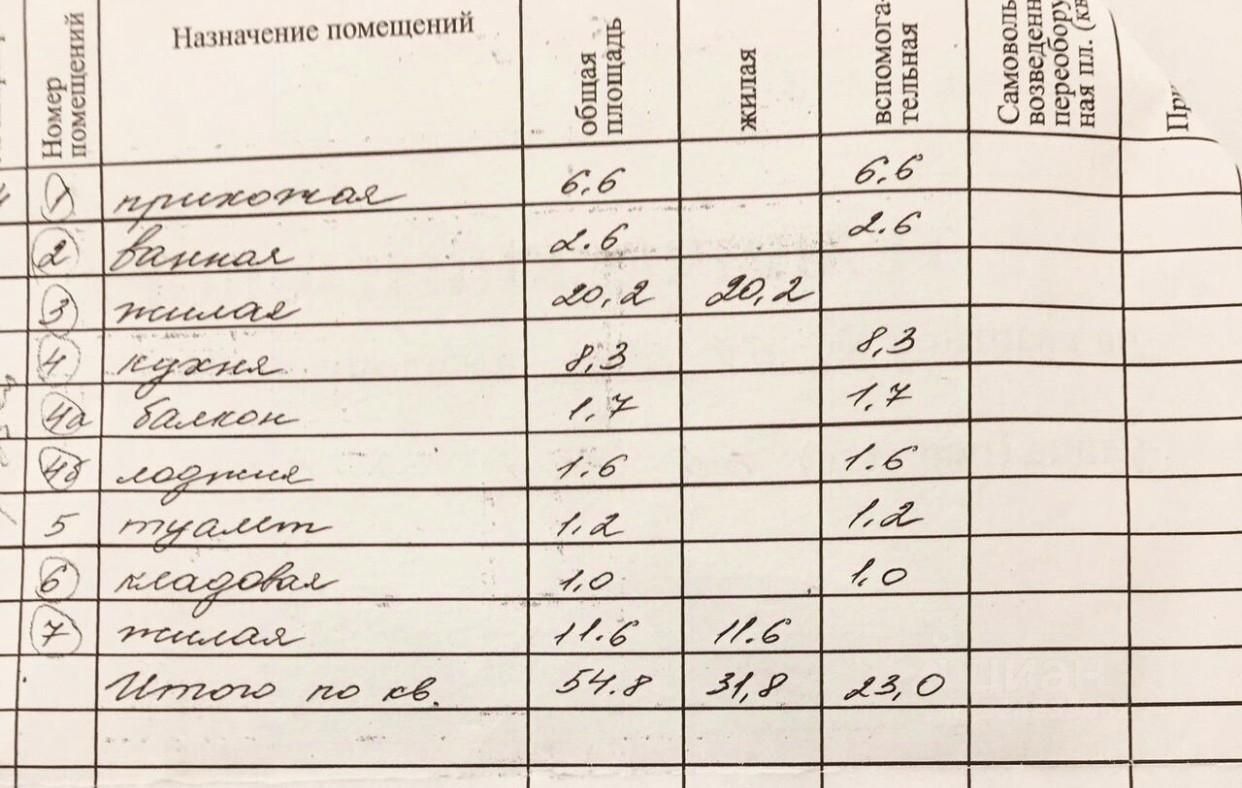 Номер помещений Назначение помещений общая площадь жилая вспомога-тельная Самоволь возведенн переобору ная пл. (кв Пр
1 прихожая 6,6 6,6
2 ванная 2.6 2.6
3 жилая 20,2 20,2
4 кухня 8,3 8,3
4а балкон 1,7 1,7
4б лоджия 1.6 1.6
5 туалет 1,2 1,2
6 кладовая 1,0 1,0
7 жилая 11.6 11.6
Итого по кв. 54.8 31,8 23,0